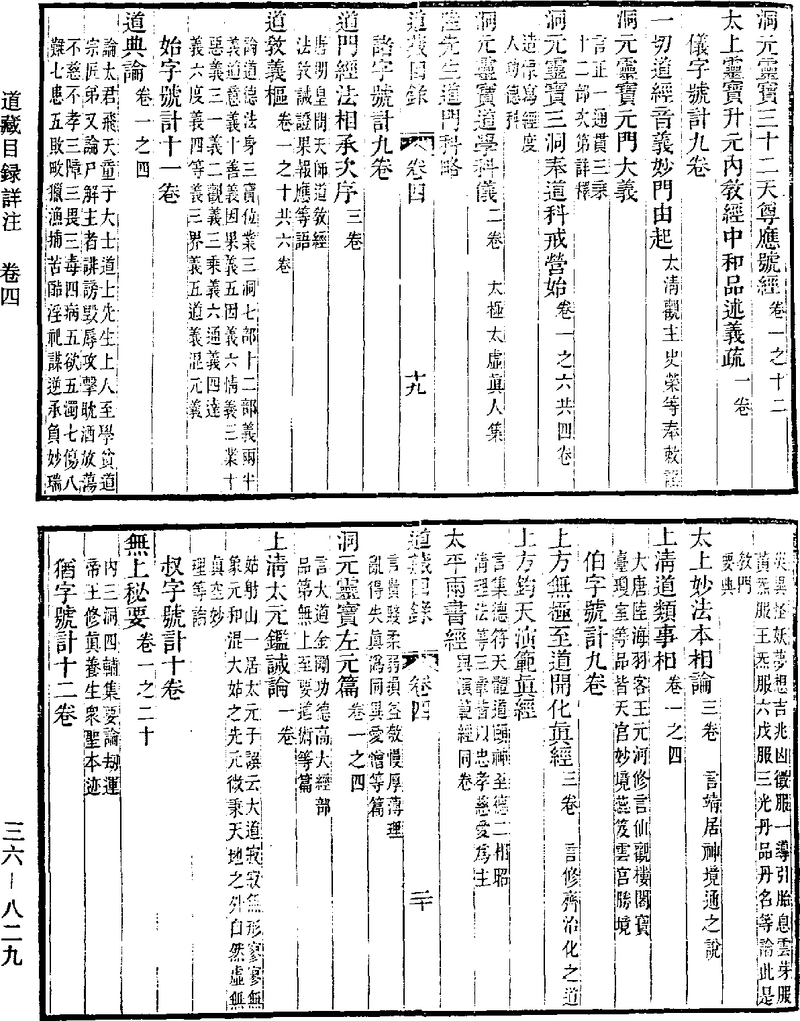 洞元靈寶三十二天尊應號經 卷一之十二
太上靈寶升元內教經中和品述義疏 一卷
儀字號計九卷
一切道經音義妙門由起 太清觀主史榮等奉敕
洞元靈寶元門大義
言正一通貫三乘
十二部次第詳釋
洞元靈寶三洞奉道科戒營始 卷一之六共四卷
造像寫經度
人功德科
洞元靈寶道學科儀 二卷 太極太虛真人集
陸先生道門科略
道藏目錄 卷四 十九
諸字號計九卷
道門經法相承次序 三卷
唐明皇問天師道教經
法教誡證果報應等語
道教義樞 卷一之十共六卷
論道德法身三寶位業三洞七部十二部義兩半
義道意義十善義因果義五因義六情義三業十
惡義三一義二觀義三乘義六通義四達
義六度義四等義三界義五道義混元義
始字號計十一卷
道典論 卷一之四
論太君飛天童子大士道士先生上人至學貧道
宗匠弟又論尸解主者誹謗毀辱攻擊耽酒放蕩
不慈不孝三障三畏三毒四病五欲五濁七傷八
難七患五敗畋獵漁捕苦酷淫祀謀逆承負妙瑞
災異怪妖夢想吉兆凶徵服一導引胎息雲芽服
黃炁服王炁服六戊服三光丹品丹名等論此是
教門
要典
太上妙法本相論 三卷 言靖居神境通之說
上清道類事相 卷一之四
大唐陸海羽客王元河修言仙觀樓閣寶
臺瓊室等品皆天宮妙境蕊笈雲宮勝境
伯字號計九卷
上方無極至道開化真經 三卷 言修齊治化之道
上方鈞天演範真經
言集德符天體道頤神至德二相昭
清理法等三章皆以忠孝慈愛為主
太平兩書經 與演範經同卷
道藏目錄 卷四 二十
言貴賤柔弱損益敬慢厚薄理
亂得失真偽同異愛憎等篇
洞元靈寶左元篇 卷一之四
言大道金剛功德高大經部
品第無上至要道術等篇
上清太元鑑誡論 一卷
姑射山一居太元子誤云大道寂寂無形寥寥無
象元和混大始之先元微秉天地之外自然虛無
真空妙
理等語
叔字號計十卷
無上秘要 卷一之二十
內三洞四輔集要論劫運
帝王修真養生眾聖本迹
猶字號計十二卷
道藏目錄詳注 卷四
三六—八二九